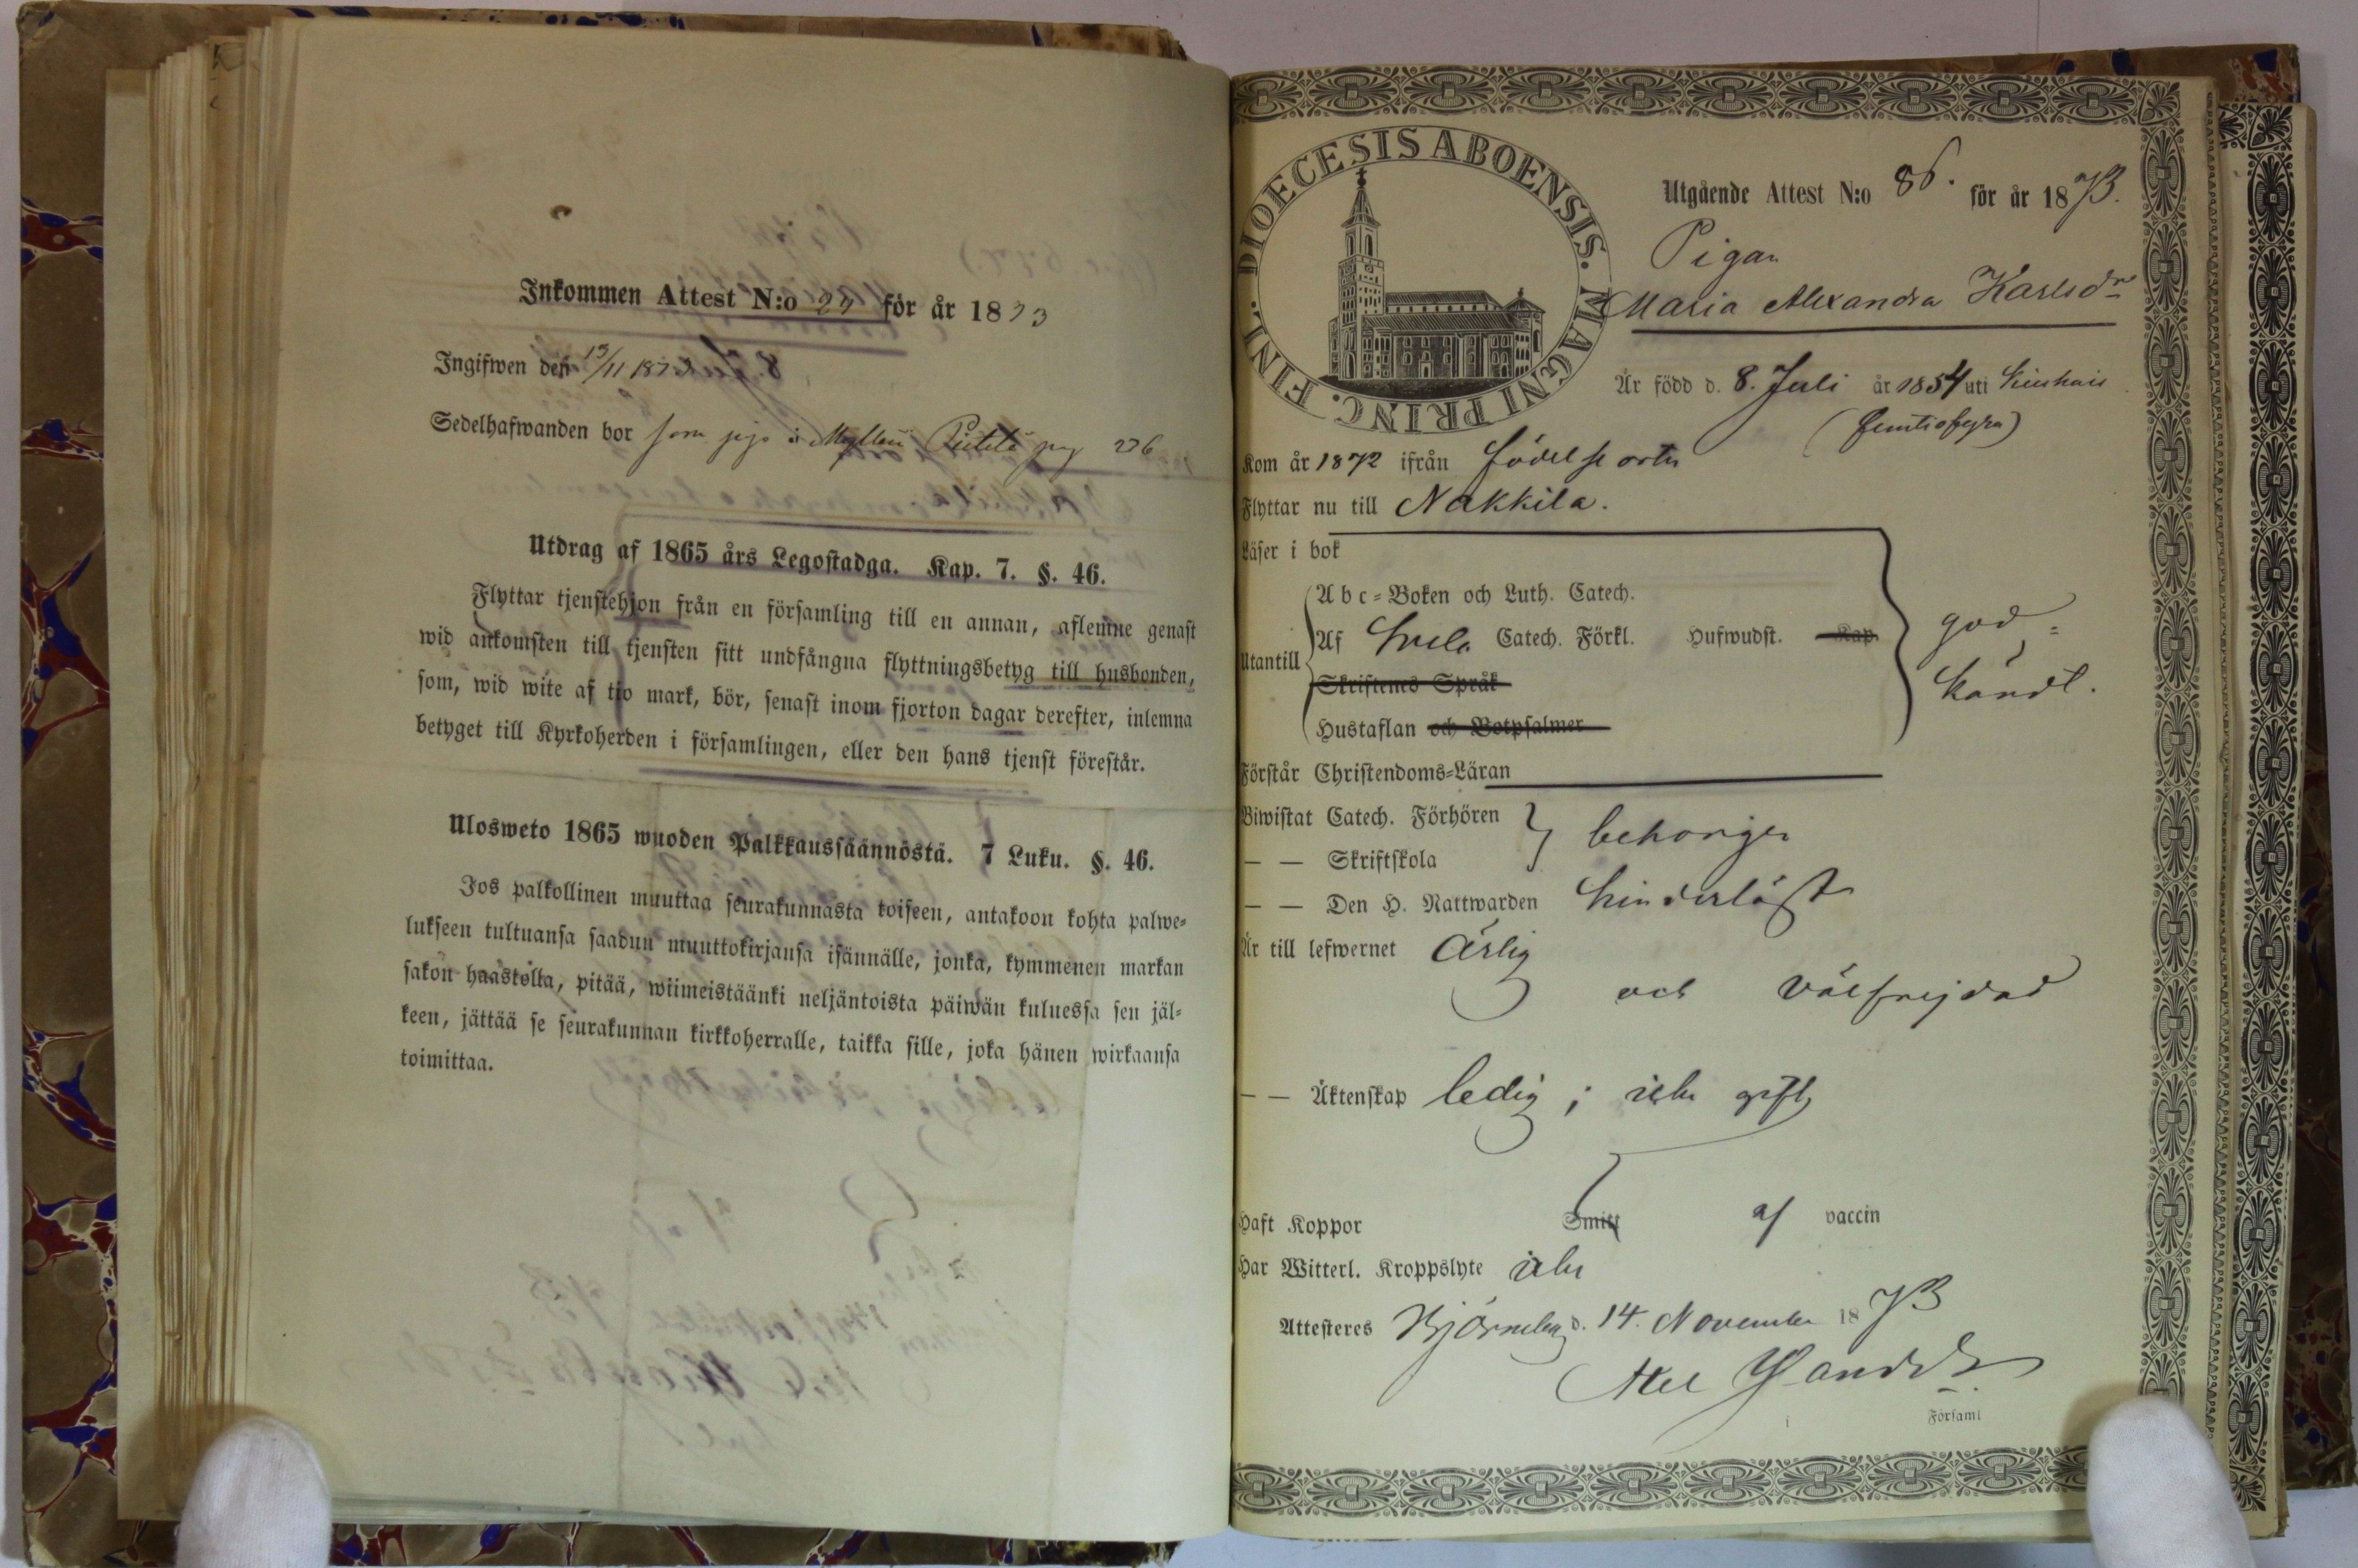 Inkommen Attest N:o 24 för år 1873
Ingifwen den 13/11 1873
Sedelhafwanden bor som piga i
Utdrag af 1865 års Legostadga. Kap. 7. §. 46.
Flyttar tjenstehjon från en församling till en annan, aflemne genast
wid ankomsten till tjensten sitt undfångna flyttningsbetyg till husbonden,
som, wid wite af tio mark, bör, senast inom fjorton dagar derefter, inlemna
betyget till Kyrkoherden i församlingen, eller den hans tjenst förestår.
Ulosweto 1865 wuoden Palkkaussäännöstä. 7 Luku. §. 46.
Jos palkollinen muuttaa seurakunnasta toiseen, antakoon kohta palwe=
lukseen tultuansa saadun muuttokirjansa isännälle, jonka, kymmenen markan
sakon haastolla, pitää, wiimeistäänki neljäntoista päiwän kuluessa sen jäl=
keen, jättää se seurakunnan kirkkoherralle, taikka sille, joka hänen wirkaansa
toimittaa.
FINL. DIOECESIS ABOENSIS. MAGNI PRINC.
Utgående Attest N:o 86. för år 1873.
Pigan
Maria Alexandra Karlsdr
Är född d. 8. Juli år 1854 uti
(femtiofyra)
Kom år 1872 ifrån födelseorten
Flyttar nu till Nakkila.
Läser i bok
Abc=Boken och Luth. Catech.
Utantill Af hela Catech. Förkl. Hufwudst. Kap.
Skriftenes Språk
Hustaflan och Botpsalmer
god=
känd t.
Förstår Christendoms=Läran
Biwistat Catech. Förhören
— — Skriftskola
behörigen
— — Den H. Nattwarden hinderlöst
Är till lefwernet ärlig
och välfrejdad
— — Äktenskap ledig; icke gift
Haft Koppor Smitt af vaccin
Har Witterl. Kroppslyte icke
Attesteres Björneborg d. 14. November 1873
Axel
i Församl